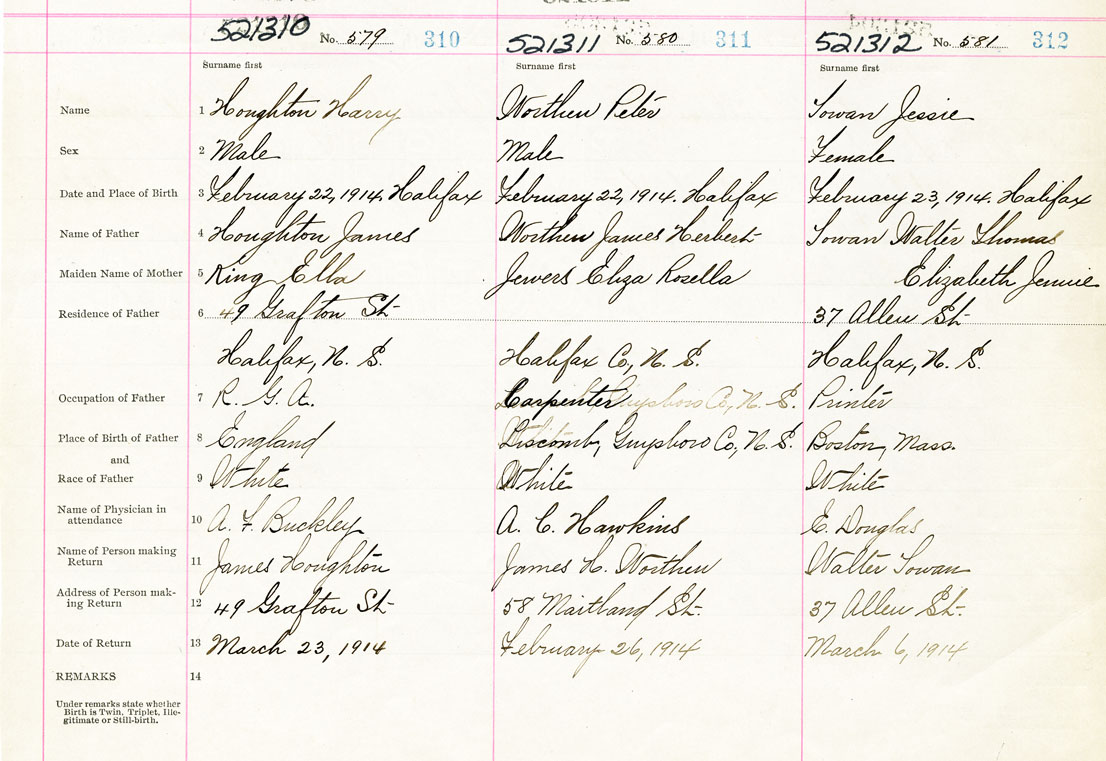 521310 No. 579 310 521311 No. 580 311 521312 No. 581 312
Surname first Surname first Surname first
Name 1 Houghton Harry Worthen Peter Sowan Jessie
Sex 2 Male Male Female
Date and Place of Birth 3 February 22, 1914. Halifax February 22, 1914. Halifax February 23, 1914. Halifax
Name of Father 4 Houghton James Worthen James Herbert Sowan Walter Thomas
Maiden Name of Mother 5 King Ella Jewers Eliza Rosella Elizabeth Jennie
Residence of Father 6 49 Grafton St. 37 Allen St.
Halifax, N. S. Halifax Co., N. S. Halifax, N. S.
Occupation of Father 7 R. G. A. Carpenter Guysboro Co., N. S. Printer
Place of Birth of Father 8 England Liscomb, Guysboro Co., N. S. Boston, Mass.
and
Race of Father 9 White White White
Name of Physician in
attendance 10 A. F. Buckley A. C. Hawkins E. Douglas
Name of Person making
Return 11 James Houghton James H. Worthen Walter Sowan
Address of Person mak-
ing Return 12 49 Grafton St. 58 Maitland St. 37 Allen St.
Date of Return 13 March 23, 1914 February 26, 1914 March 6, 1914
REMARKS 14
Under remarks state whether
Birth is Twin, Triplet, Ille-
gitimate or Still-birth.